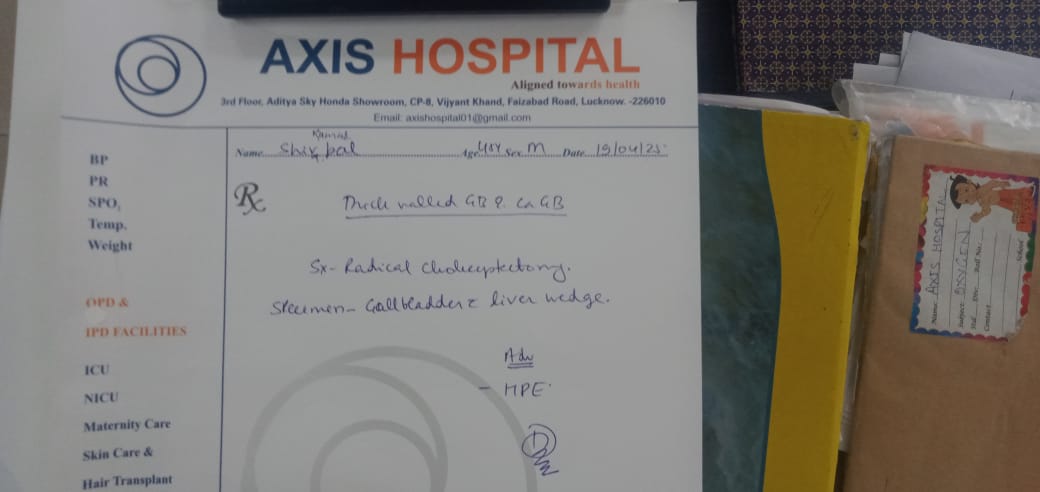 AXIS HOSPITAL
Aligned towards health
3rd Floor, Aditya Sky Honda Showroom, CP-8, Vijyant Khand, Faizabad Road, Lucknow. -226010
Email: axishospital01@gmail.com
Kumar
Name Shiv pal Age 45Y Sex M Date 19/04/25
BP
PR
SPO2
Temp.
Weight
OPD &
IPD FACILITIES
ICU
NICU
Maternity Care
Skin Care &
Hair Transplant
Rx
Thick walled GB ? Ca GB
Sx- Radical Cholecystectomy.
Specimen- Gallbladder c liver wedge.
Adv
- HPE.
Name: AXIS HOSPITAL
Subject: OXYGEN
Std. Div. Roll No.
School
Contact